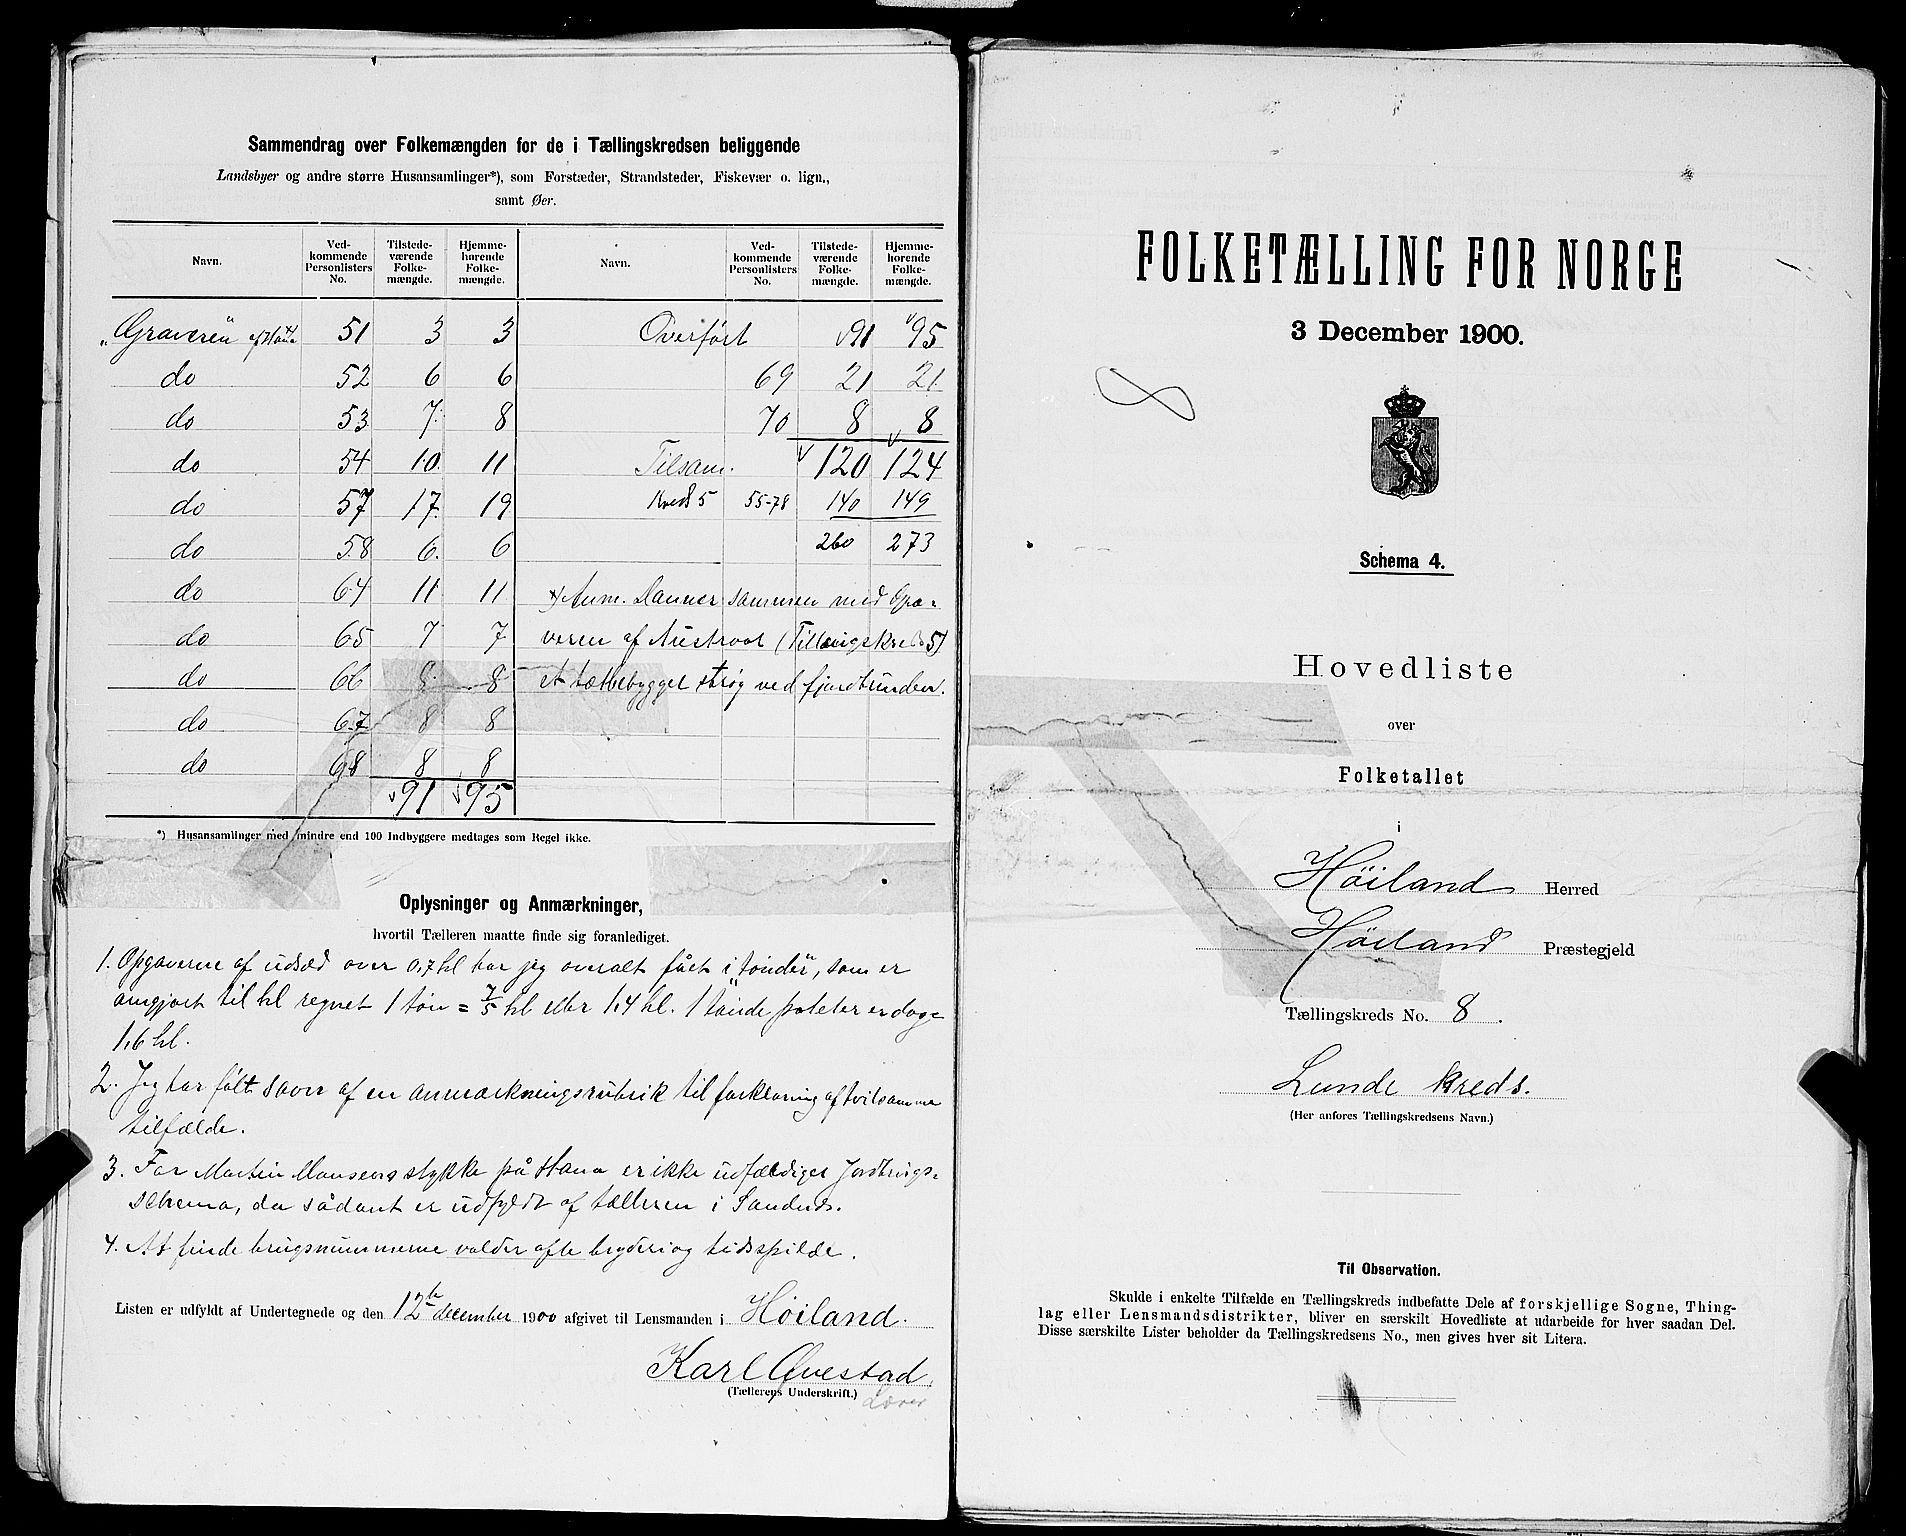 Sammendrag over Folkemængden for de i Tællingskredsen beliggende
Landsbyer og andre større Husansamlinger*), som Forstæder, Strandsteder, Fiskevær o. lign.,
samt Øer.
Navn. Ved-kommende Personlisters No. Tilstede-værende Folke-mængde. Hjemme-hørende Folke-mængde. Navn. Ved-kommende Personlisters No. Tilstede-værende Folke-mængde. Hjemme-hørende Folke-mængde.
Graveren af Hana 51 3 3 Overført 91 95
do 52 6 6 69 21 21
do 53 7 8 70 8 8
do 54 10 11 Tilsam. 120 124
do 57 17 19 Kreds 5 55-78 140 149
do 58 6 6 260 273
do 64 11 11 Anm. Danner sammen med Gra-
do 65 7 7 veren af Austraat (Tællingskreds 5)
do 66 8 8 et tætbebygget strøg ved fjordbunden.
do 67 8 8
do 68 8 8
91 95
*) Husansamlinger med mindre end 100 Indbyggere medtages som Regel ikke.
Oplysninger og Anmærkninger,
hvortil Tælleren maatte finde sig foranlediget.
1. Opgaverne af udsæd over 0,7 hl har jeg overalt fået i tønder, som er
omgjort til hl regnet 1 tøn = 7/5 hl eller 1,4 hl. 1 tønde poteter er dog =
1,6 hl.
2. Jeg har følt savn af en anmærkningsrubrik til forklaring af tvilsomme
tilfælde.
3. For Martin Hansens stykke på Hana er ikke udfærdiget Jordbrugs-
schema, da sådant er udfyldt af tælleren i Sandnes.
4. At finde brugsnummerne volder ofte bryderi og tidsspilde.
Listen er udfyldt af Undertegnede og den 12te december 1900 afgivet til Lensmanden i Høiland.
Karl Øvestad
(Tællerens Underskrift.)
Lærer
FOLKETÆLLING FOR NORGE
3 December 1900.
Schema 4.
Hovedliste
over
Folketallet
i
Høiland Herred
Høiland Præstegjeld
Tællingskreds No. 8.
Lunde kreds.
(Her anføres Tællingskredsens Navn.)
Til Observation.
Skulde i enkelte Tilfælde en Tællingskreds indbefatte Dele af forskjellige Sogne, Thing-
lag eller Lensmandsdistrikter, bliver en særskilt Hovedliste at udarbeide for hver saadan Del.
Disse særskilte Lister beholder da Tællingskredsens No., men gives hver sit Litera.